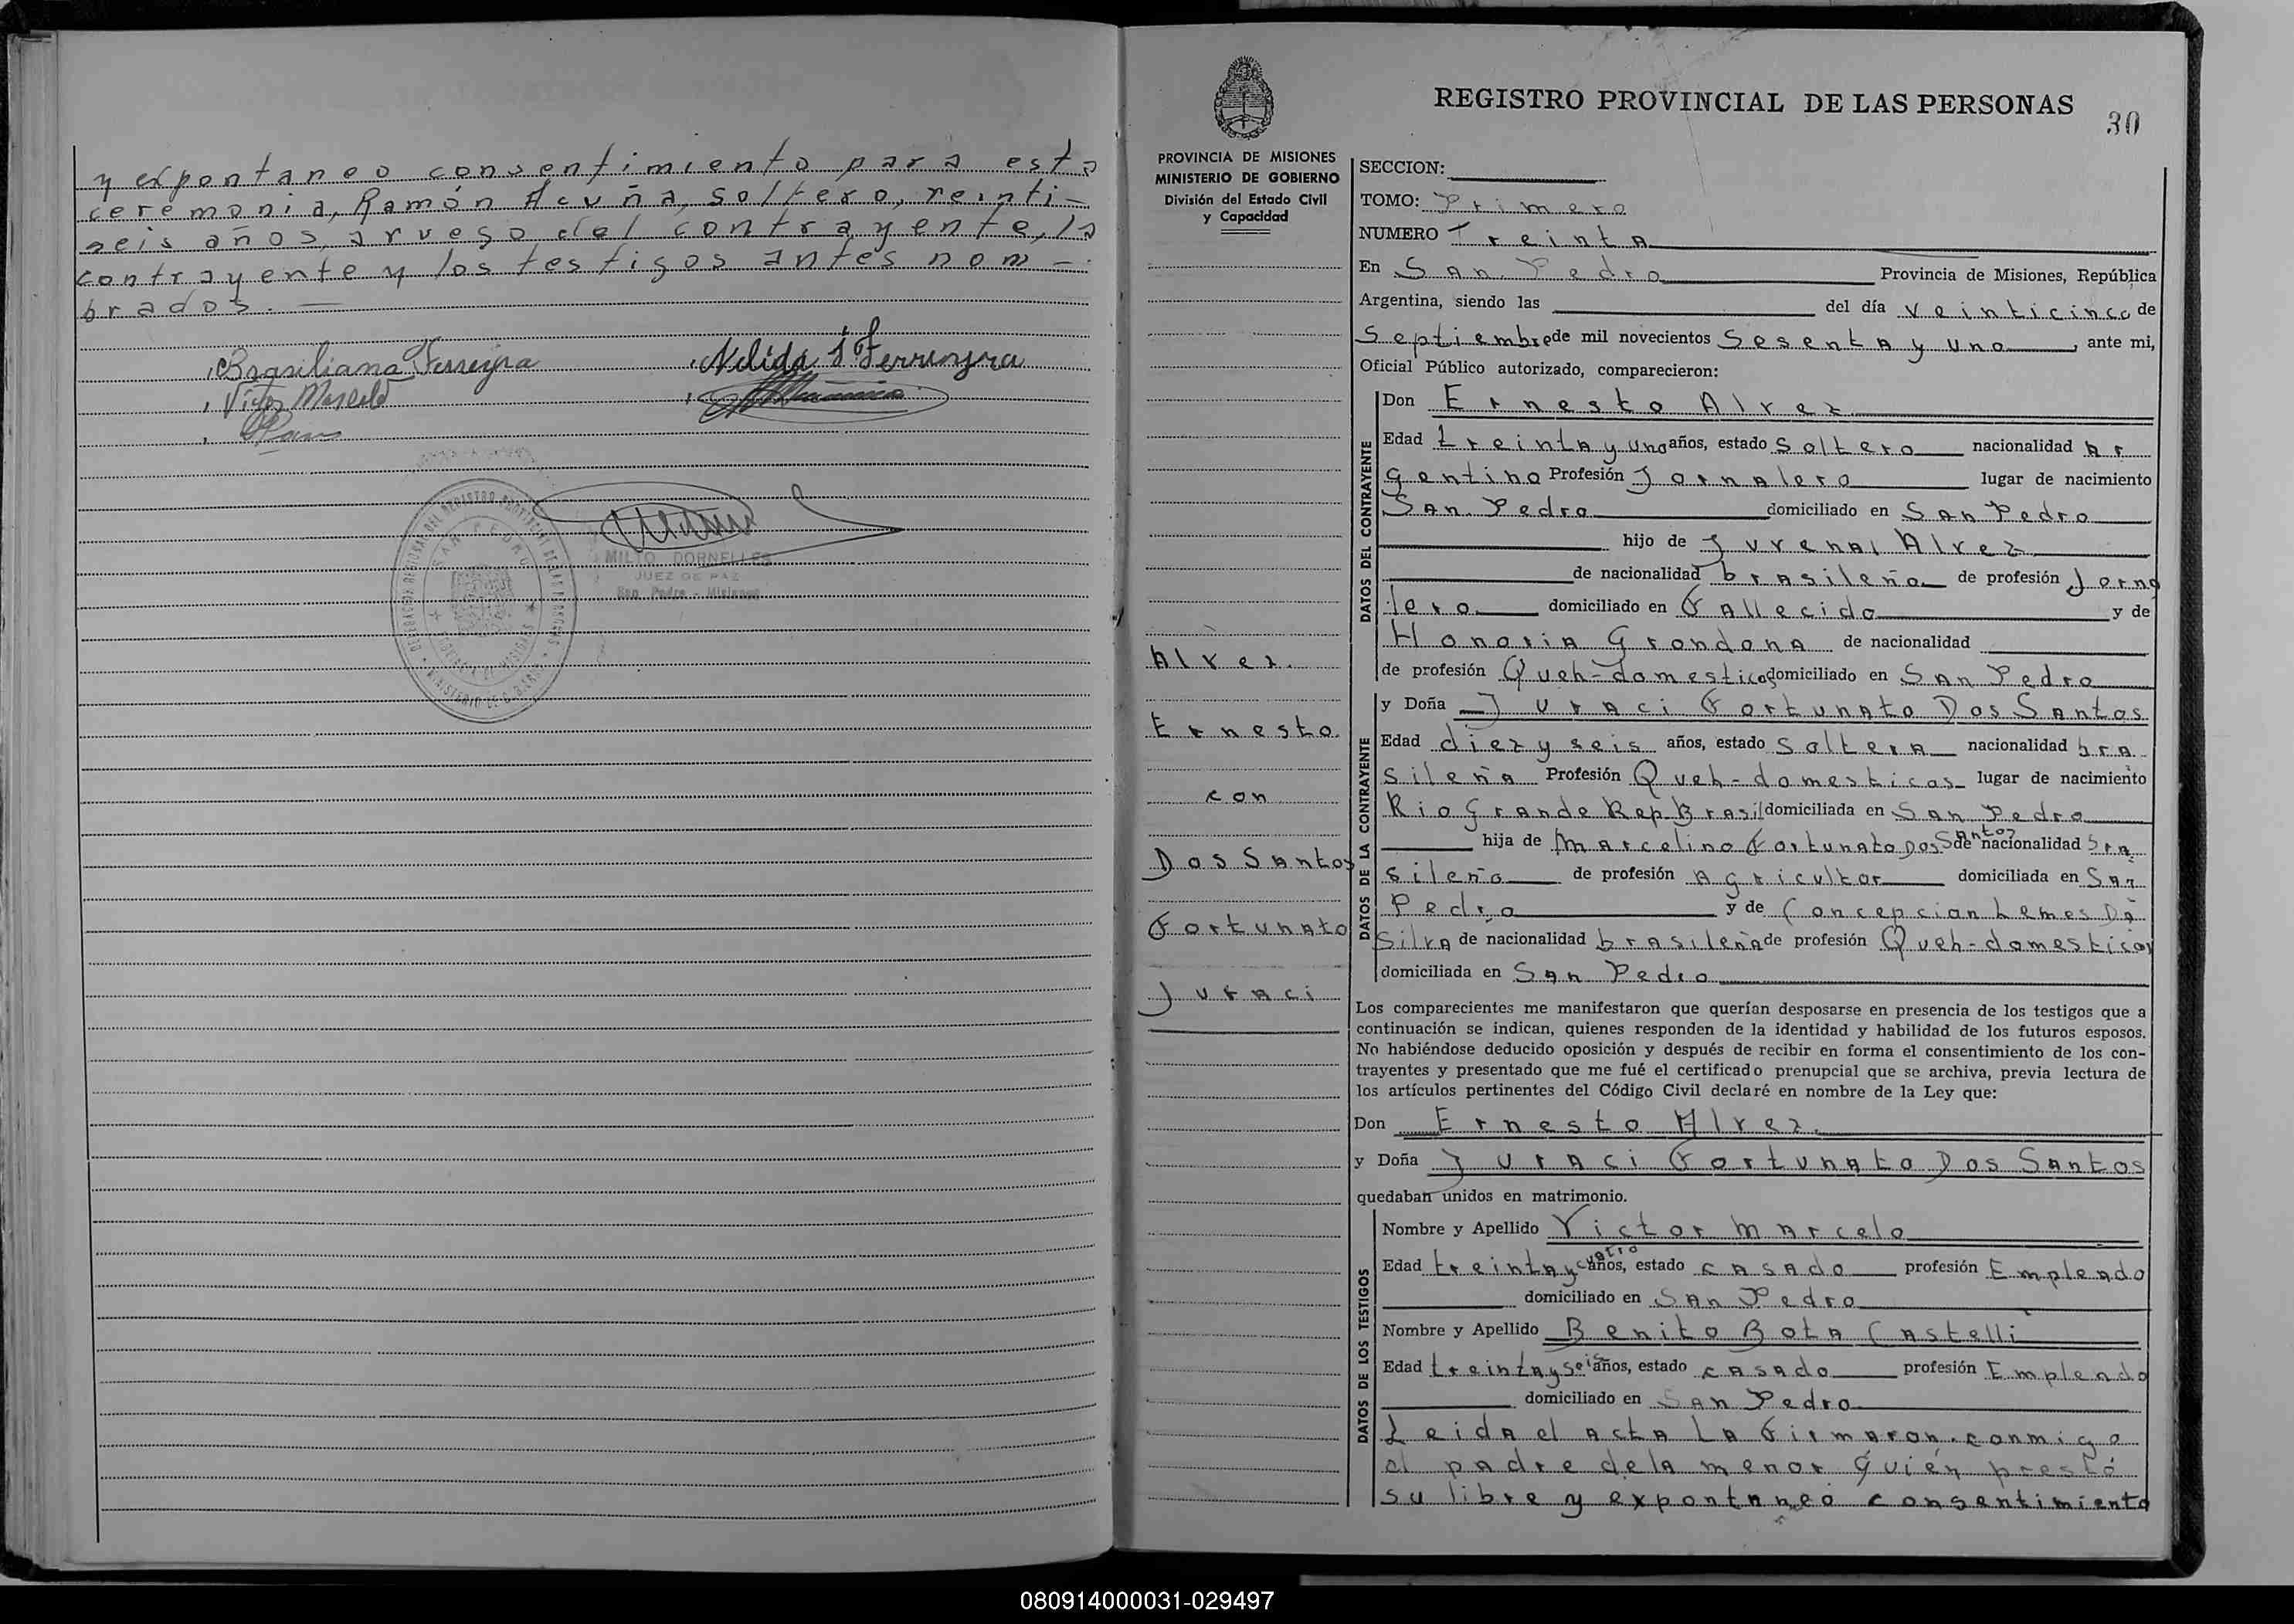 y expontaneo consentimiento para esta
ceremonia, Ramón Acuña, soltero, veinti-
seis años, a ruego del contrayente, la
contrayente y los testigos antes nom-
brados.
Brasiliana Ferreyra
Nelida Ferreyra
Victor Marcelo
SAN PEDRO
MILTO DORNELLES
JUEZ DE PAZ
San Pedro - Misiones
REGISTRO PROVINCIAL DE LAS PERSONAS
30
PROVINCIA DE MISIONES
MINISTERIO DE GOBIERNO
División del Estado Civil
y Capacidad
Alvez
Ernesto
con
Dos Santos
Fortunato
Juraci
SECCION:
TOMO: Primero
NUMERO Treinta
En San Pedro Provincia de Misiones, República
Argentina, siendo las del día veinticinco de
Septiembre de mil novecientos Sesenta y uno, ante mi,
Oficial Público autorizado, comparecieron:
DATOS DEL CONTRAYENTE
Don Ernesto Alvez
Edad treinta y uno años, estado soltero nacionalidad ar
gentino Profesión Jornalero lugar de nacimiento
San Pedro domiciliado en San Pedro
hijo de Juvenal Alvez
de nacionalidad brasileño de profesión Jorna
lero domiciliado en Fallecido y de
Honoria Grondona de nacionalidad
de profesión Queh-domesticos domiciliado en San Pedro
DATOS DE LA CONTRAYENTE
y Doña Juraci Fortunato Dos Santos
Edad diez y seis años, estado soltera nacionalidad bra
sileña Profesión Queh-domesticos lugar de nacimiento
Rio Grande Rep. Brasil domiciliada en San Pedro
hija de Marcelino Fortunato Dos Santos de nacionalidad bra
sileño de profesión Agricultor domiciliada en San
Pedro y de Concepcion Lemes Da
Silva de nacionalidad brasileña de profesión Queh-domesticos
domiciliada en San Pedro
Los comparecientes me manifestaron que querían desposarse en presencia de los testigos que a
continuación se indican, quienes responden de la identidad y habilidad de los futuros esposos.
No habiéndose deducido oposición y después de recibir en forma el consentimiento de los con-
trayentes y presentado que me fué el certificado prenupcial que se archiva, previa lectura de
los artículos pertinentes del Código Civil declaré en nombre de la Ley que:
Don Ernesto Alvez
y Doña Juraci Fortunato Dos Santos
quedaban unidos en matrimonio.
DATOS DE LOS TESTIGOS
Nombre y Apellido Victor Marcelo
Edad treinta y cuatro años, estado casado profesión Empleado
domiciliado en San Pedro
Nombre y Apellido Benito Bota Castelli
Edad treinta y seis años, estado casado profesión Empleado
domiciliado en San Pedro
Leida el acta la firmaron conmigo
el padre de la menor quién prestó
su libre y expontaneo consentimiento
080914000031-029497